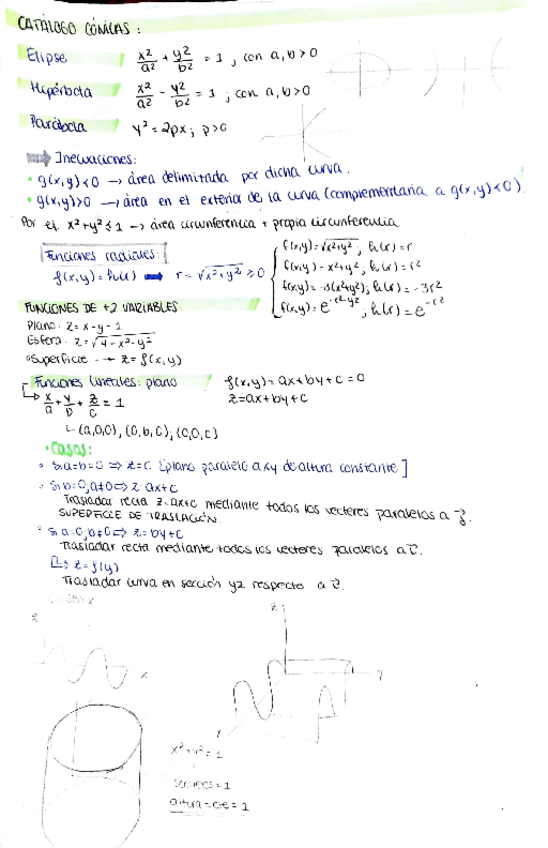 CATÁLOGO CÓNICAS:
Elipse x²/a² + y²/b² = 1, con a,b>0
Hipérbola x²/a² - y²/b² = 1; con a,b>0
Parábola y² = 2px; p>0
Inecuaciones:
• g(x,y)<0 → área delimitada por dicha curva.
• g(x,y)>0 → área en el exterior de la curva (complementaria a g(x,y)<0).
Por ej. x²+y² ≤ 1 → área circunferencia + propia circunferencia
Funciones radiales:
f(x,y)=h(r) ➡ r = √x²+y² ≥ 0
f(x,y)=√x²+y², h(r)=r
f(x,y)=x²+y², h(r)=r²
f(x,y)=-3(x²+y²); h(r)=-3r²
h(r)=e^-r²
FUNCIONES DE +2 VARIABLES
Plano: z=x-y-1
Esfera: z=√4-x²-y²
Superficie → z=f(x,y)
Funciones lineales: plano f(x,y)=ax+by+c=0
x/a + y/b + z/c = 1 z=ax+by+c
(a,0,0), (0,b,0), (0,0,c)
• CASOS:
Si a=b=0 ⇒ z=c [plano paralelo a xy de altura constante]
Si b=0, a≠0 ⇒ z=ax+c
Trasladar recta z=ax+c mediante todos los vectores paralelos a
SUPERFICIE DE TRASLACIÓN.
Si a=0, b≠0 ⇒ z=by+c
Trasladar recta mediante todos los vectores paralelos a
z=f(y)
Trasladar curva en sección yz respecto a
z
x
z
y
x²+y²=1
altura = = 1